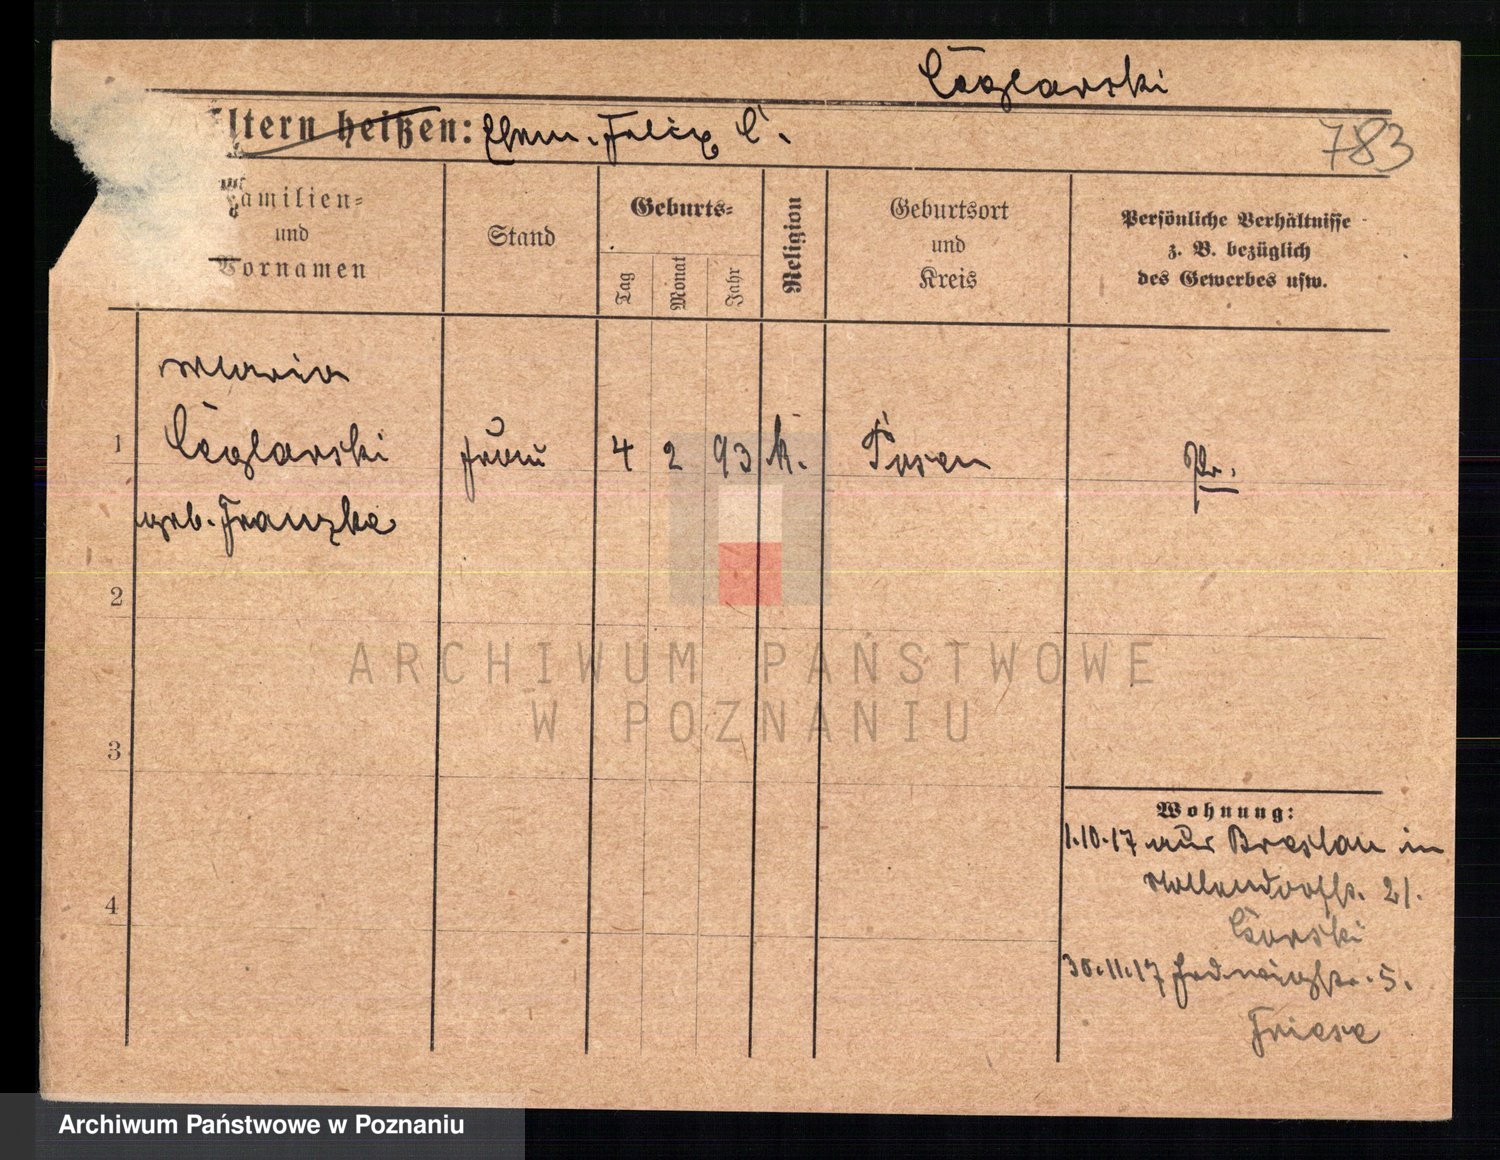 Ceglarski
ltern heißen: Ehem. Felix C.
783
Familien=
und
Vornamen
Stand
Geburts=
Tag
Monat
Jahr
Religion
Geburtsort
und
Kreis
Persönliche Verhältnisse
z. B. bezüglich
des Gewerbes usw.
Maria
1 Ceglarski Frau 4 2 93 k. Posen Pr.
geb. Franzke
2
3
4
Wohnung:
1.10.17 aus Breslau in
Möllendorffstr. 21.
30.11.17 Hedwigstr. 5.
Friese
ARCHIWUM PAŃSTWOWE
W POZNANIU
Archiwum Państwowe w Poznaniu